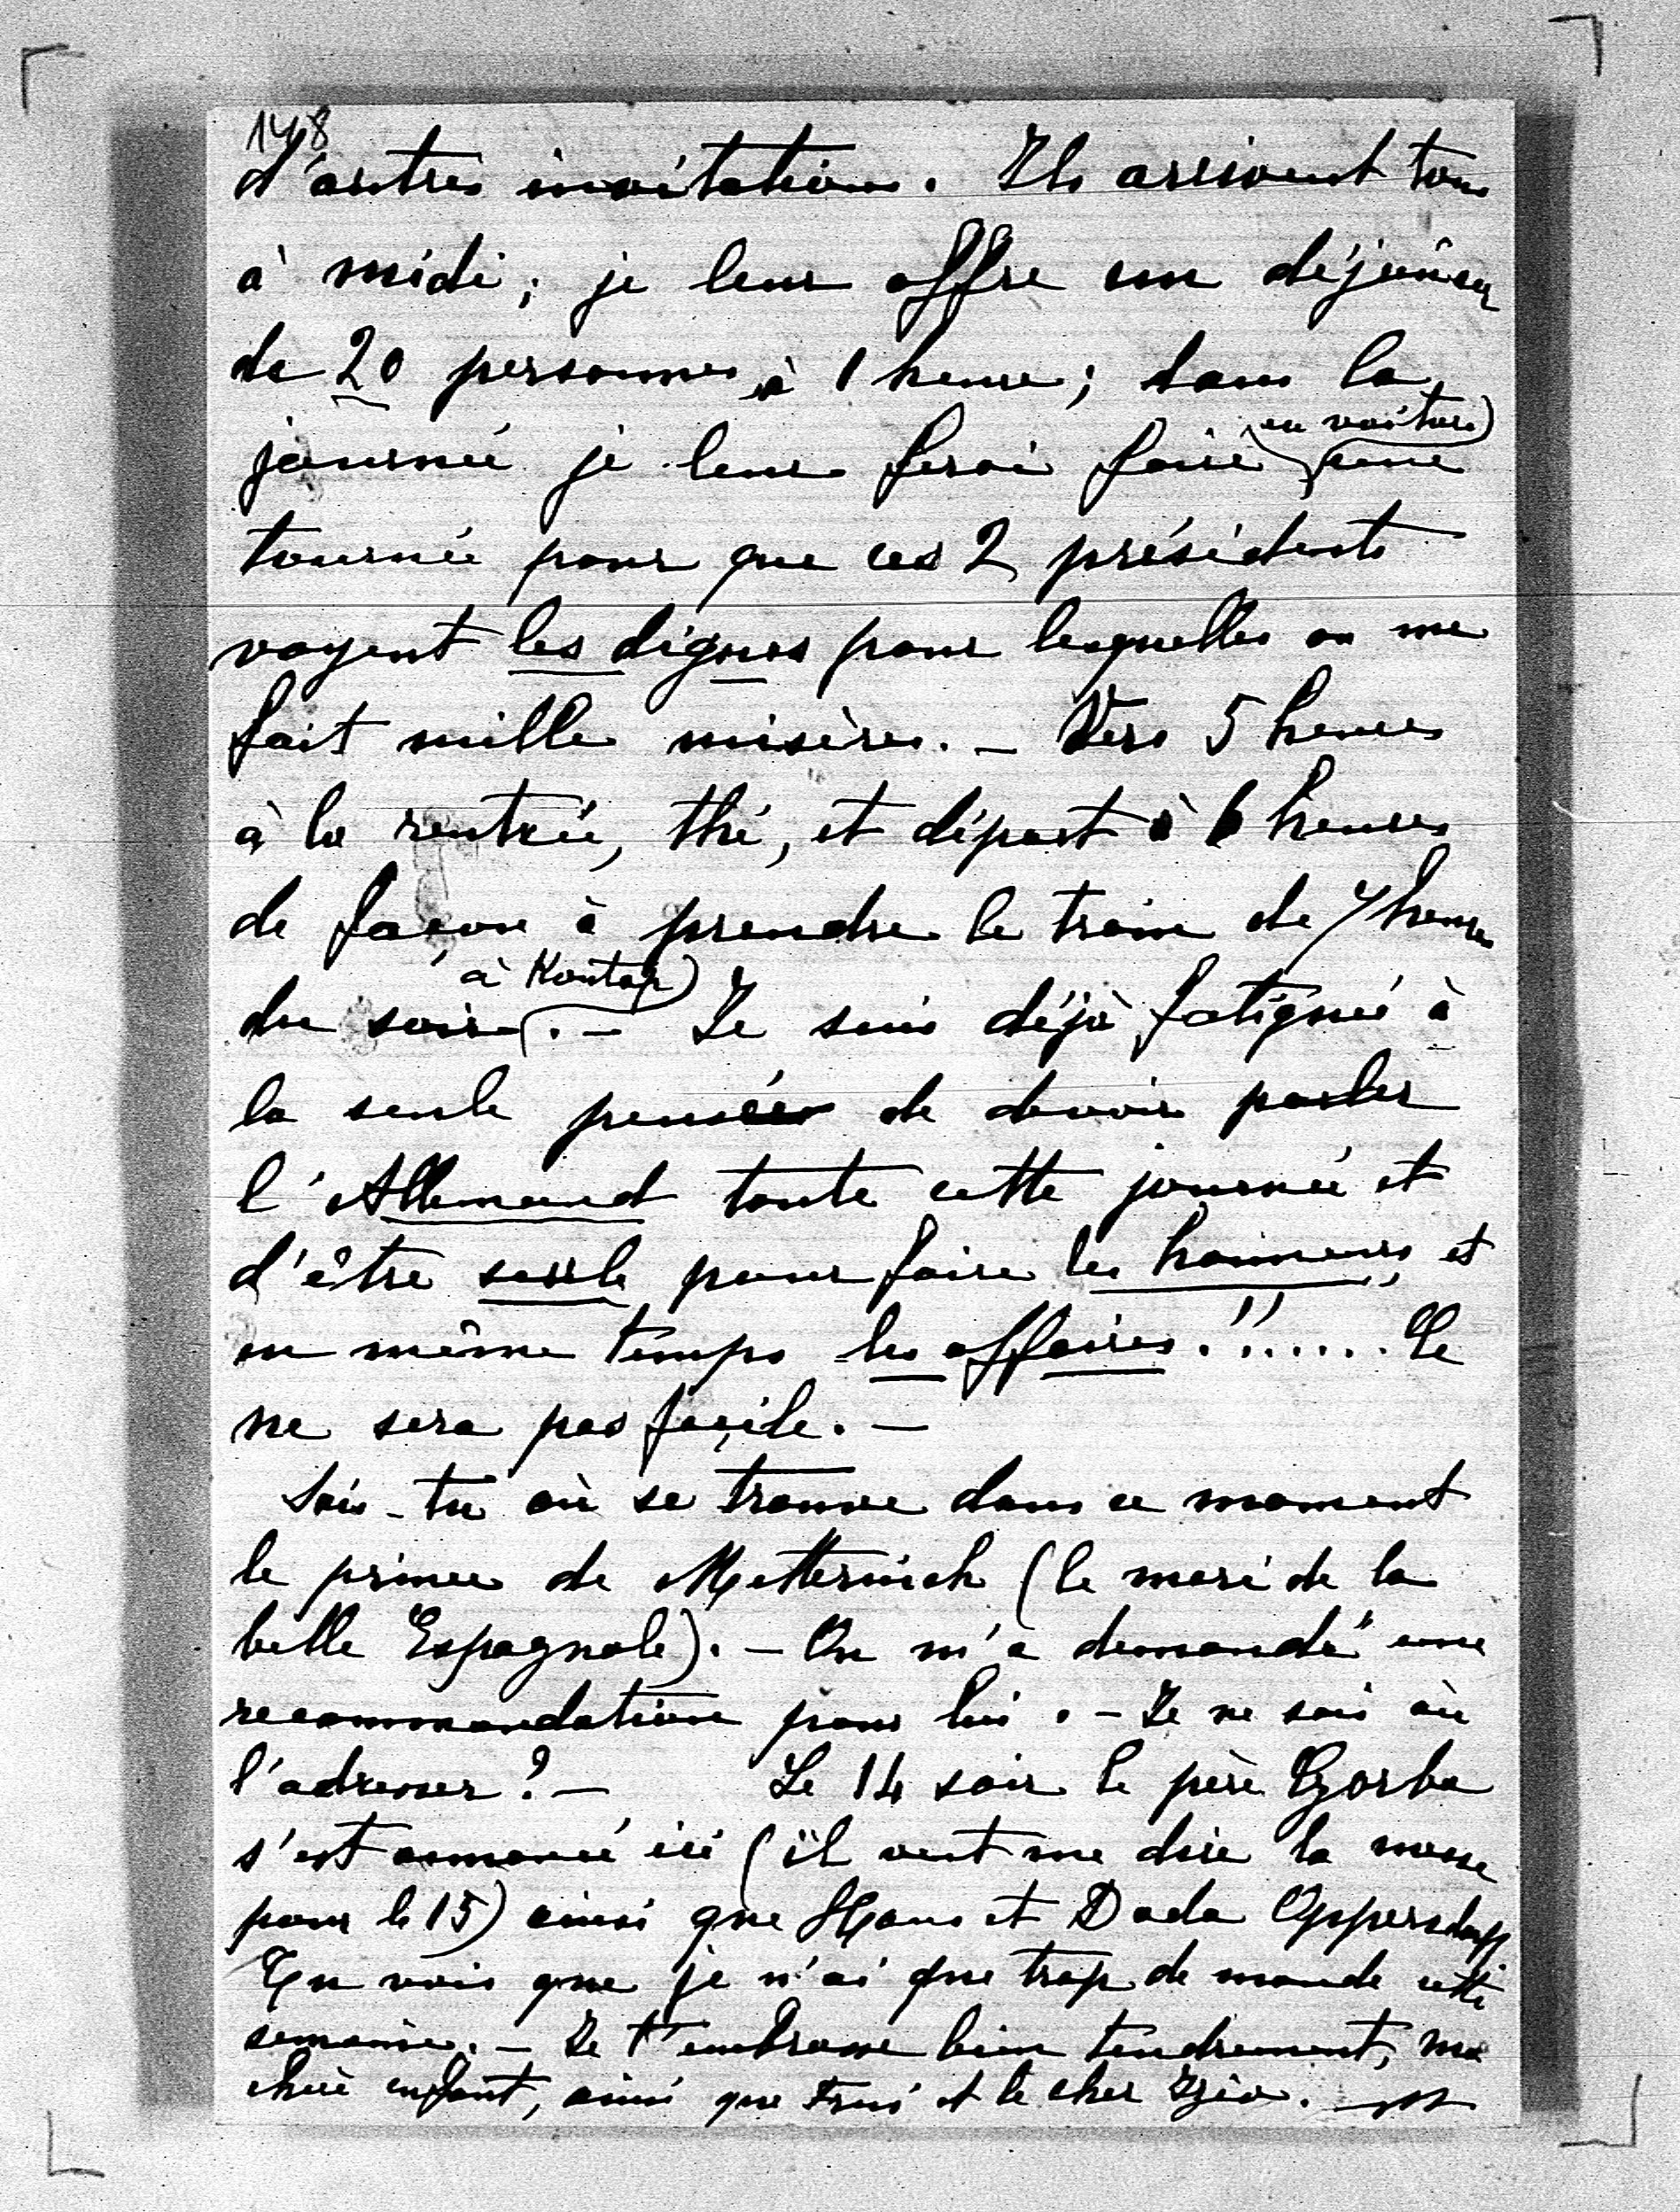 148
d'autres invitations. Ils arrivent tous
à midi; je leur offre un déjeuner
de 20 personnes à 1 heure; dans la
journée je leur ferai faire (en voiture) une
tournée pour que ces 2 présidents
voyent les digues pour lesquelles on me
fait mille misères. – Vers 5 heures
à la rentrée, thé, et départ à 6 heures
de façon à prendre le train de 7 heures
du soir (à Kontop). – Je suis déjà fatiguée à
la seule pensée de devoir parler
l'Allemand toute cette journée et
d'être seule pour faire les honneurs, et
en même temps les affaires.!!...... Ce
ne sera pas façile. –
Sais-tu où se trouve dans ce moment
le prince de Metternich (le mari de la
belle Espagnole). – On m'a demandé une
recommandation pour lui. – Je ne sais où
l'adresser? – Le 14 soir le père
s'est annoncé ici (il veut me dire la messe
pour le 15) ainsi que Hans et Dada Oppersdorff
Tu vois que je n'ai que trop de monde cette
semaine. – Je t'embrasse bien tendrement, ma
chère enfant, ainsi que et le cher